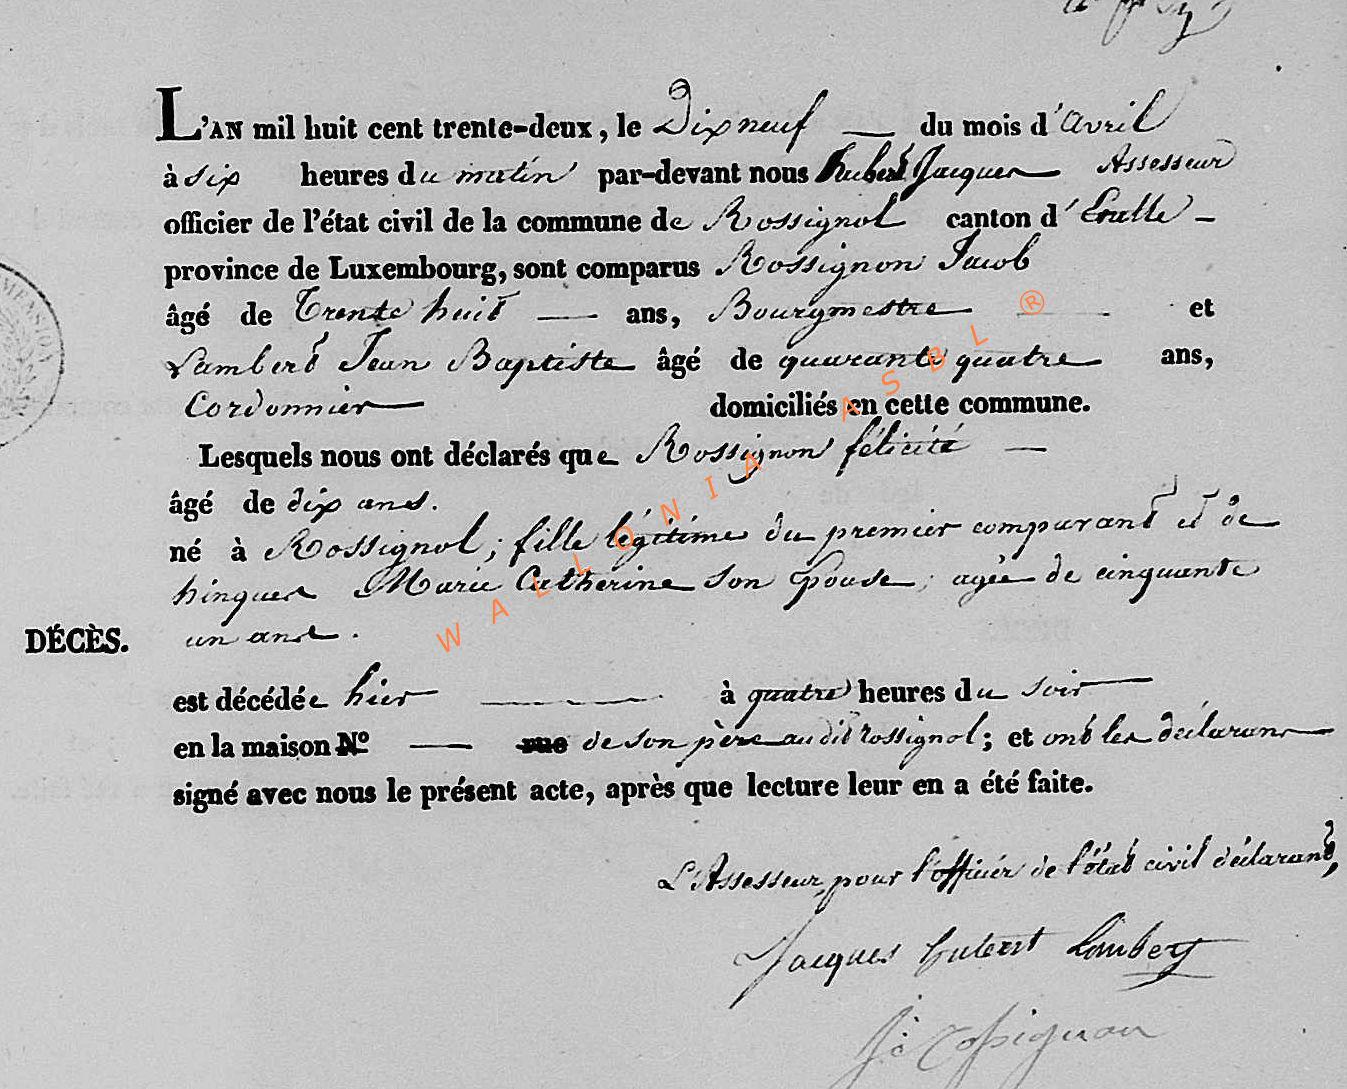 L'AN mil huit cent trente-deux, le Dix neuf du mois d'avril
à six heures du matin par-devant nous hubert Jacques Assesseur
officier de l'état civil de la commune de Rossignol canton d'Etalle
province de Luxembourg, sont comparus Rossignon Jacob
âgé de Trente huit ans, Bourgmestre et
Lambert Jean Baptiste âgé de quarante quatre ans,
Cordonnier domiciliés en cette commune.
Lesquels nous ont déclarés que Rossignon félicité
âgé de dix ans.
né à Rossignol; fille légitime du premier comparant et de
hinques Marie Catherine son Epouse; agée de cinquante
DÉCÈS. un ans.
est décédée hier à quatre heures du soir
en la maison No rue de son père au dit rossignol; et ont les déclarans
signé avec nous le présent acte, après que lecture leur en a été faite.
L'Assesseur, pour l'officier de l'état civil déclarant,
Jacques hubert Lambert
Rossignon
MENSION
WALLONIA ASBL ®